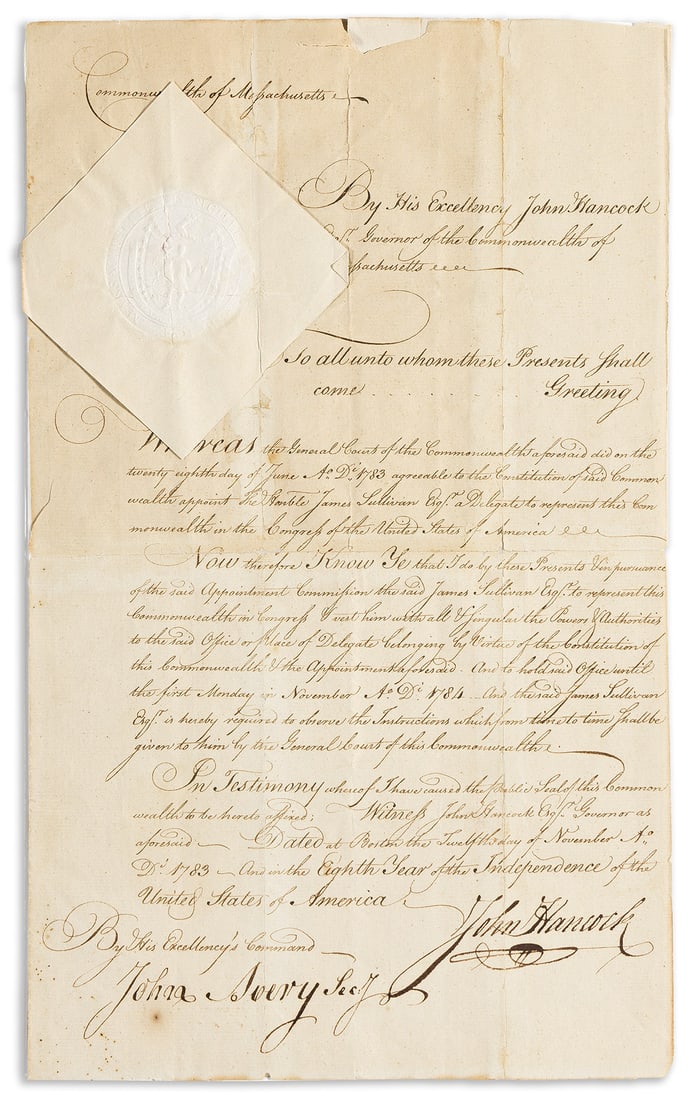 Commonwealth of Massachusetts
By His Excellency John Hancock
Esqr. Governor of the Commonwealth of
ssachusetts
To all unto whom these Presents shall
come . . . . . . . Greeting
Whereas the General Court of the Commonwealth aforesaid did on the
twenty eighth day of June Ao. Di. 1783 agreable to the Constitution of said Common
wealth appoint the Honble James Sullivan Esqr. a Delegate to represent this Com
monwealth in the Congress of the United States of America
Now therefore Know Ye that I do by these Presents & in pursuance
of the said Appointment Commission the said James Sullivan Esqr. to represent this
Commonwealth in Congress & vest him with all & singular the Powers & Authorities
to the said Office or Place of Delegate belonging by Virtue of the Constitution of
this Commonwealth & the Appointment aforesaid. And to hold said Office until
the first Monday in November Ao. Di. 1784 - And the said James Sullivan
Esqr. is hereby required to observe the Instructions which from time to time shall be
given to him by the General Court of this Commonwealth.
In Testimony whereof I have caused the Public Seal of this Common
wealth to be hereto affixed; Witness John Hancock Esqr. Governor as
aforesaid — Dated at Boston the Twelfth day of November Ao.
Di. 1783 - And in the Eighth Year of the Independence of the
United States of America
John Hancock
By His Excellency's Command
John Avery Secy